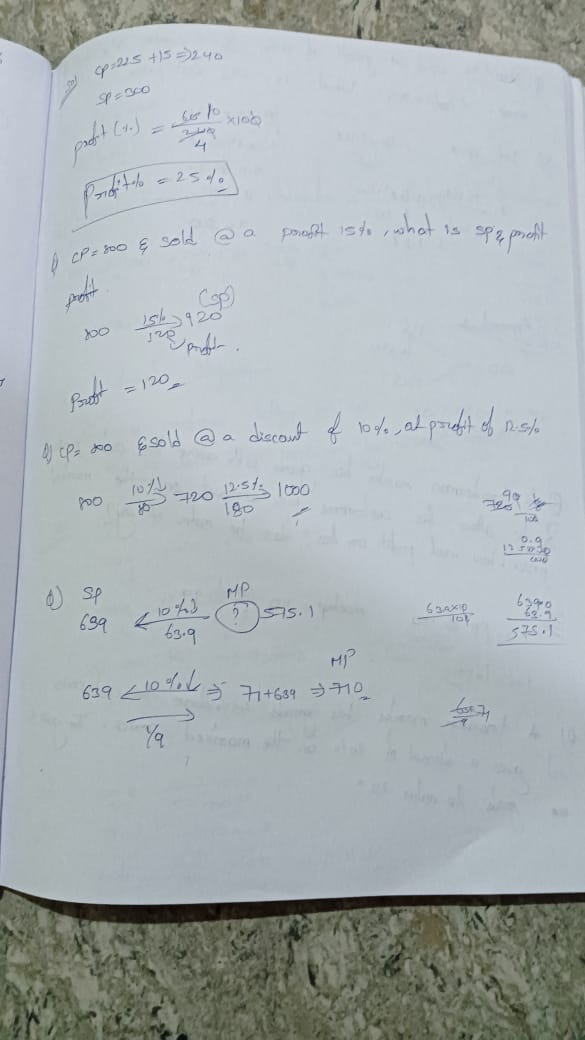 CP=225 +15=>240
SP=300
profit (%) = 60 / 240 ×100
4
Profit% = 25%
Q) CP=800 & sold @ a profit 15%, what is SP & profit
profit.
(SP)
800 15% 120 920
profit.
Profit = 120
Q) CP= 800 & sold @ a discount of 10%, at profit of 12.5%
800 10%↓ 80 720 12.5% 180 1000
Q) SP MP
639 10%↓ 63.9 ? 575.1
639×10
639.0
63.9
575.1
MP
639 10%↓ => 71+639 => 710
1/9